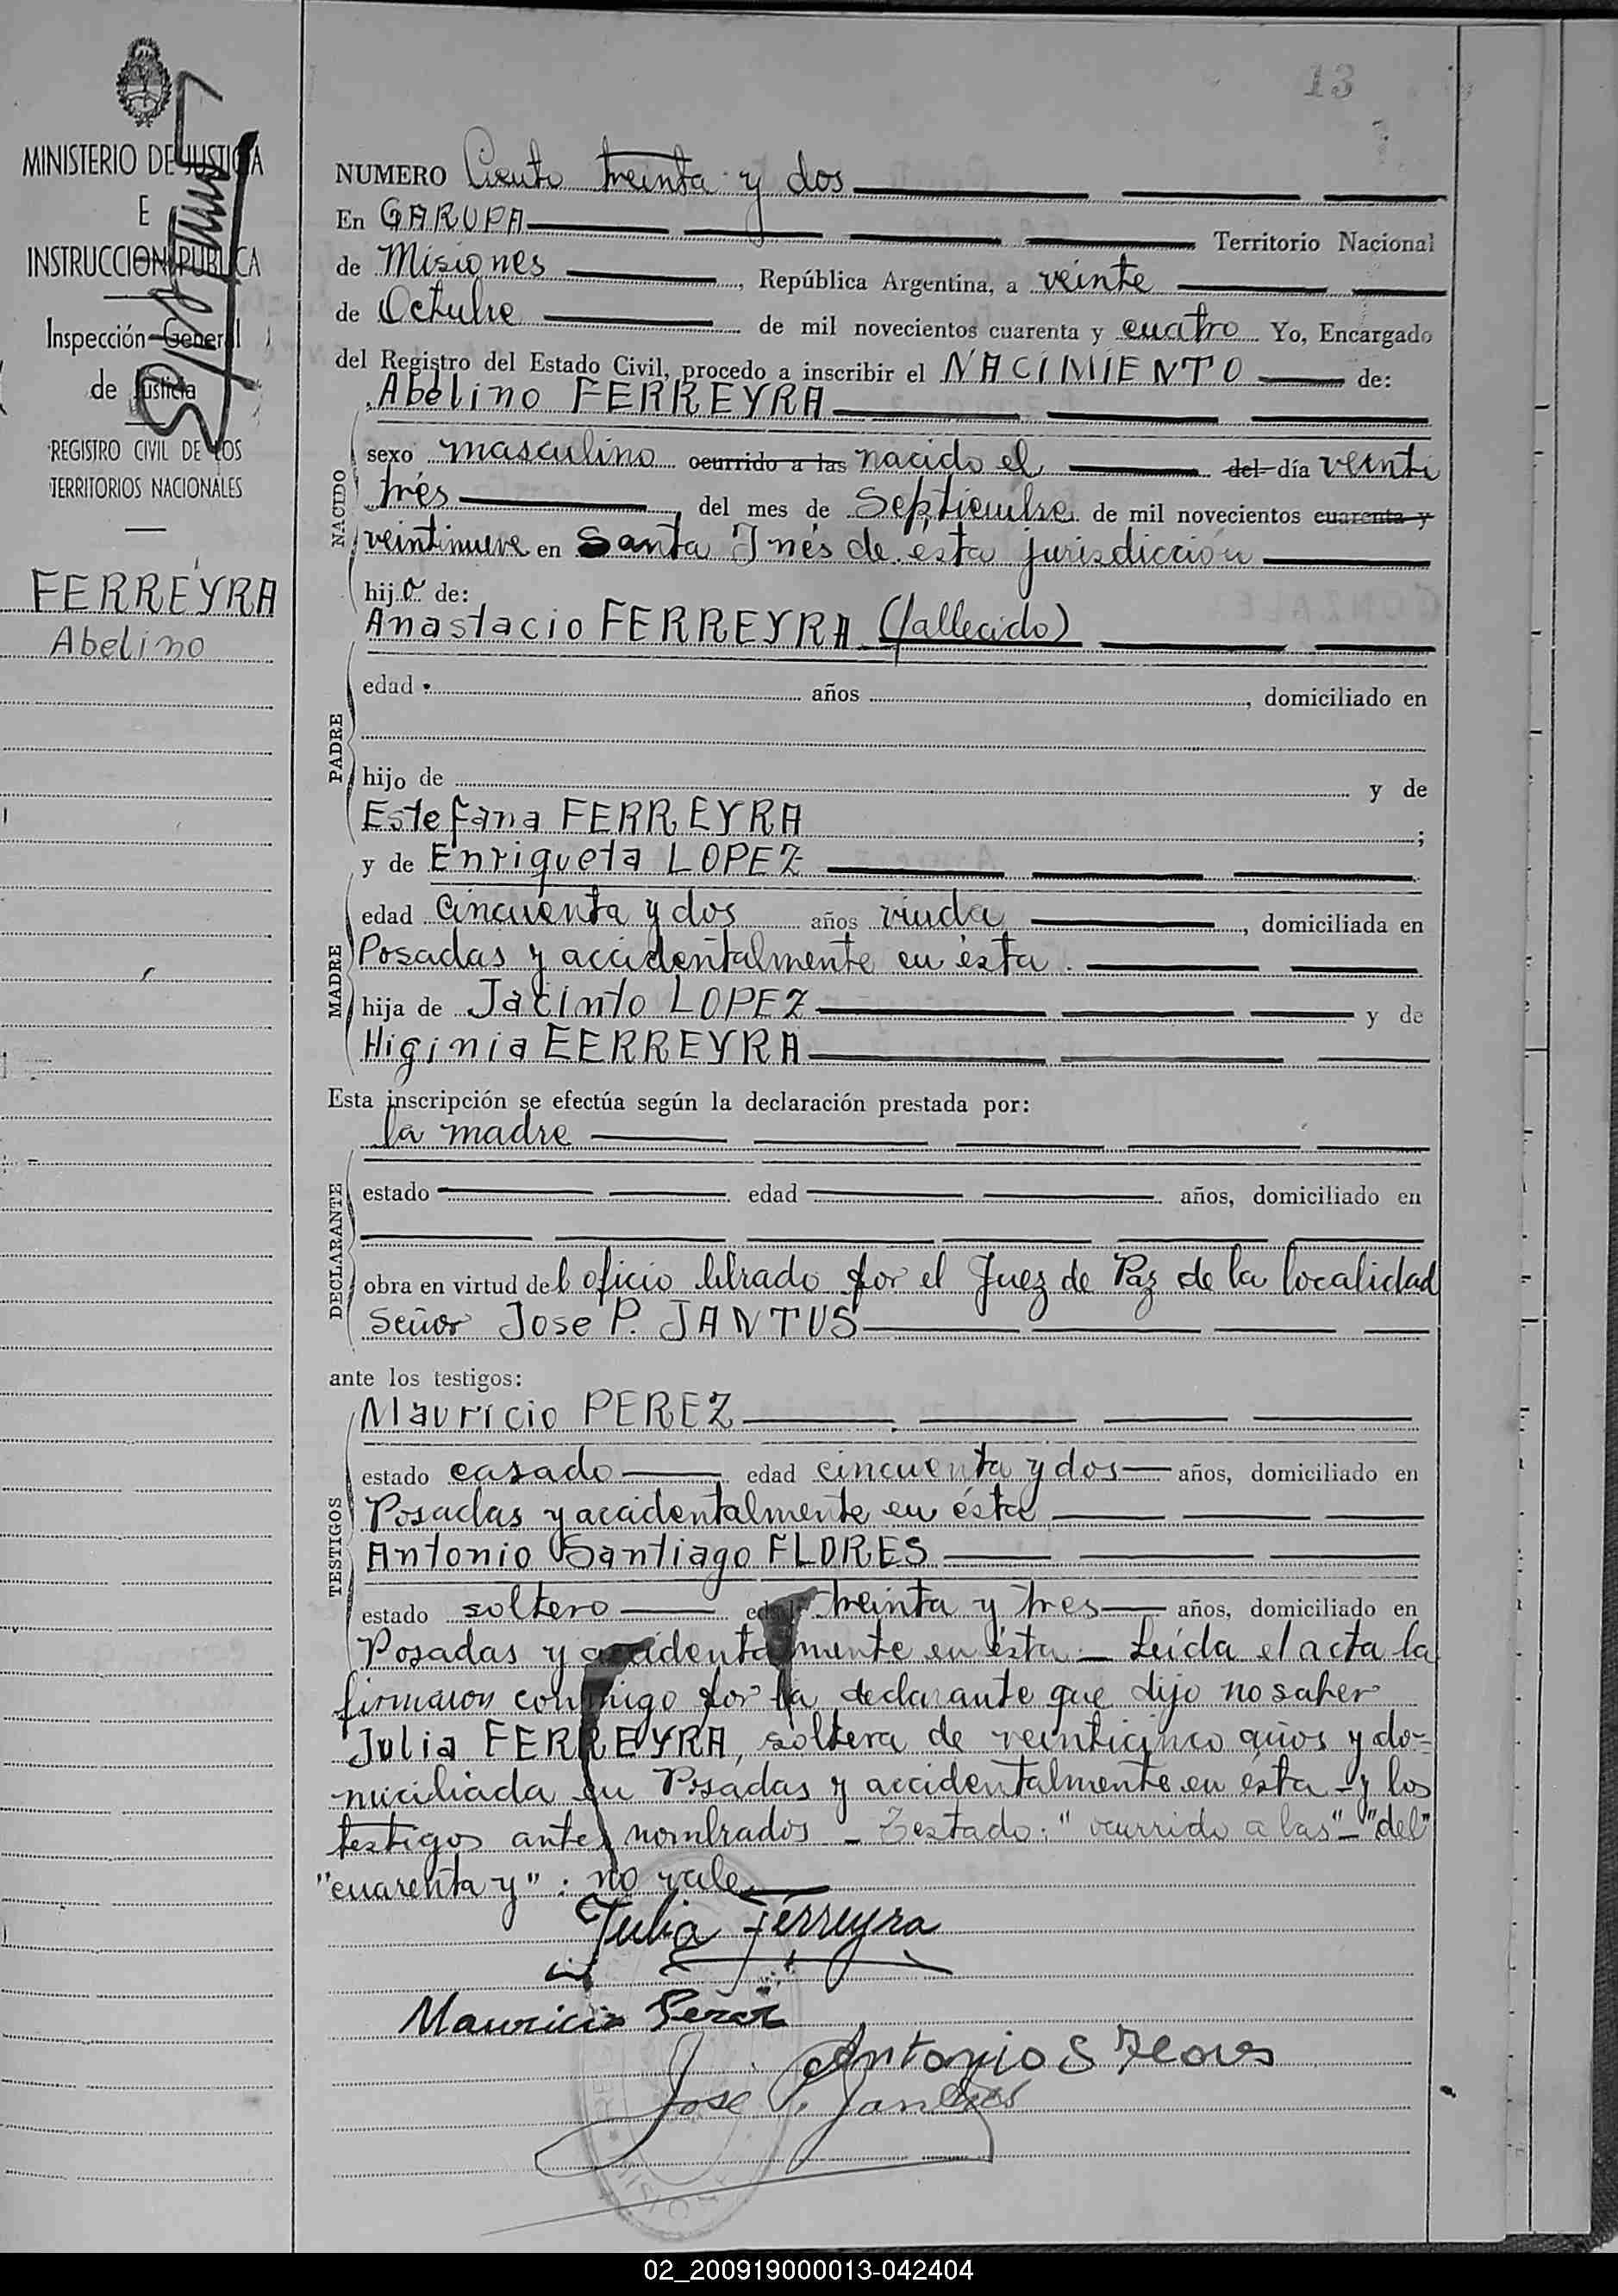 13
MINISTERIO DE JUSTICIA
E
INSTRUCCION PUBLICA
Inspección General
de Justicia
REGISTRO CIVIL DE LOS
TERRITORIOS NACIONALES
FERREYRA
Abelino
NUMERO Ciento treinta y dos
En GARUPA Territorio Nacional
de Misiones, República Argentina, a veinte
de Octubre de mil novecientos cuarenta y cuatro Yo, Encargado
del Registro del Estado Civil, procedo a inscribir el NACIMIENTO de:
Abelino FERREYRA
NACIDO
sexo masculino ocurrido a las nacido el del día veinti
trés del mes de Septiembre de mil novecientos cuarenta y
veintinueve en Santa Inés de ésta jurisdicción
hijo de:
Anastacio FERREYRA (fallecido)
PADRE
edad años, domiciliado en
hijo de y de
Estefana FERREYRA;
y de Enriqueta LOPEZ
MADRE
edad cincuenta y dos años viuda, domiciliada en
Posadas y accidentalmente en ésta.
hija de Jacinto LOPEZ y de
Higinia FERREYRA
Esta inscripción se efectúa según la declaración prestada por:
la madre
DECLARANTE
estado edad años, domiciliado en
obra en virtud del oficio librado por el Juez de Paz de la localidad
Señor Jose P. JANTUS
ante los testigos:
Mauricio PEREZ
TESTIGOS
estado casado edad cincuenta y dos años, domiciliado en
Posadas y accidentalmente en ésta
Antonio Santiago FLORES
estado soltero edad treinta y tres años, domiciliado en
Posadas y accidentalmente en ésta — Leída el acta la
firmaron conmigo por la declarante que dijo no saber
Julia FERREYRA, soltera de veinticinco años y do-
miciliada en Posadas y accidentalmente en ésta - y los
testigos antes nombrados - Testado: "ocurrido a las" - "del"
"cuarenta y" : no vale
Julia Ferreyra
Mauricio Perez
Antonio S Flores
Jose P. Jantus
02_200919000013-042404